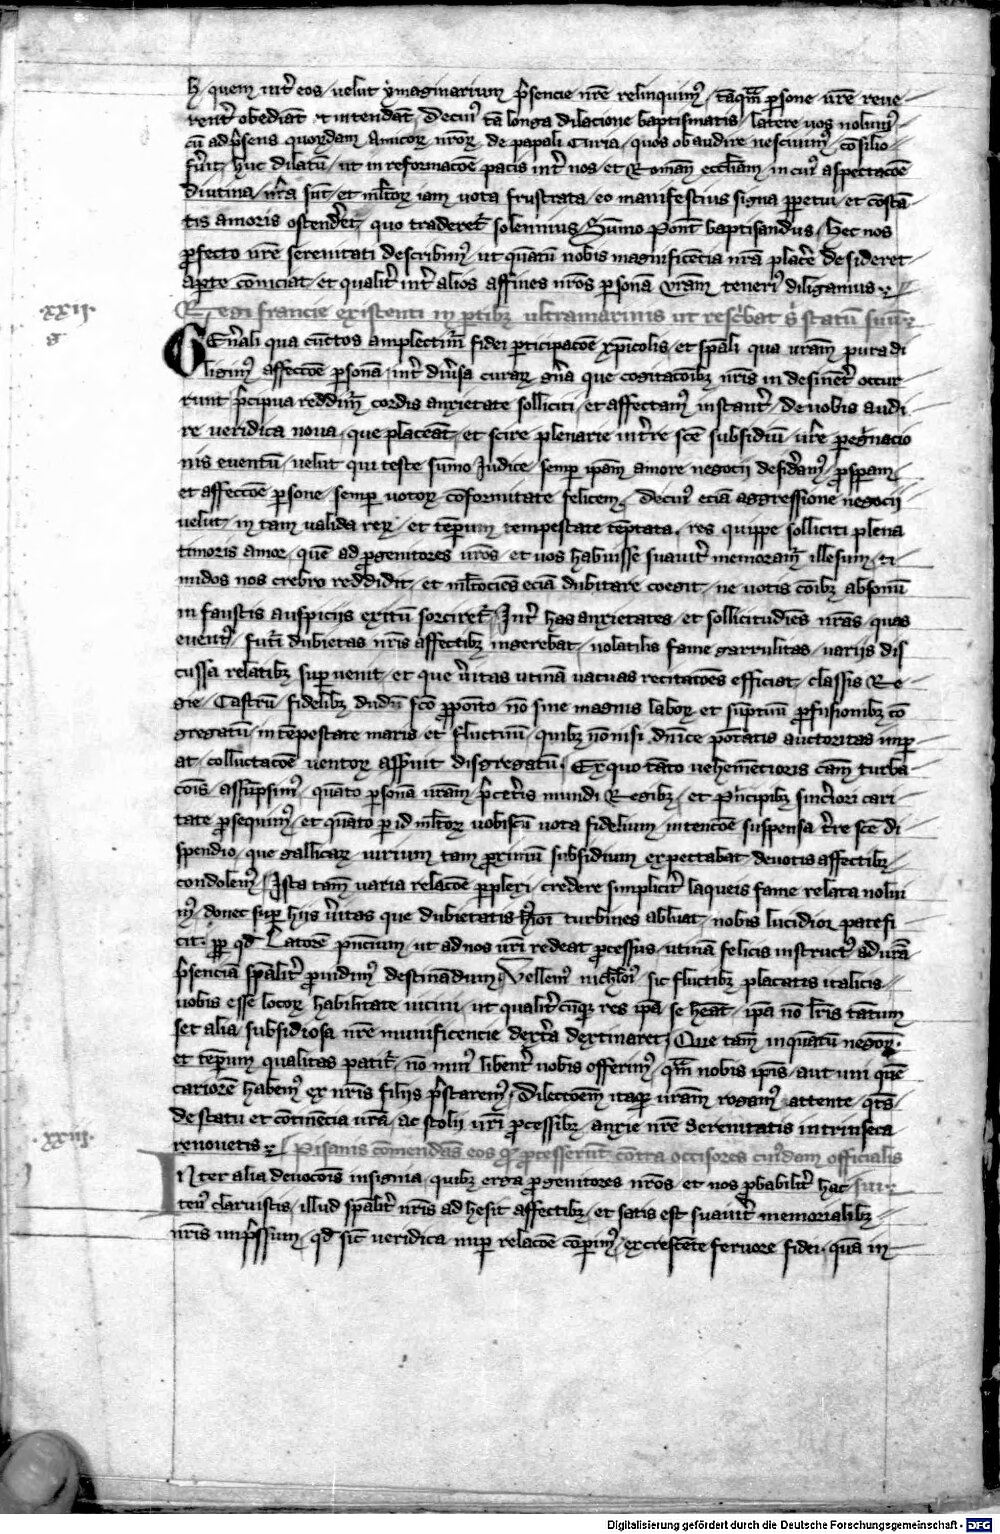 h quem int͛ eos / velut ymaginarium p͛sencie nr̄e relinquimꝰ / tāq̄ꝫ ꝑsone nr̄e reve
rent͛ obediāt et intendāt / De cuiꝰ tā longa dilacione baptismatis / latere vos nolumꝰ
cū ad p͛sens quordam Amicoꝝ nr̄oꝝ / de papali Curia / quos obaudire nescimꝰ / cōsilio
fu͛it / huc dilatū / ut in reformacōe pacis int͛ nos / et Romanā eccl̄iam in cuiꝰ aspectacōe
diutina / nr̄a sūt / et ml̄toꝝ iam vota frustrata / eo manifestius signa ꝑpetui / et cōstā
tis amoris ostendet͛ / quo traderet͛ solennius / Sūmo Pont͛ baptisandus / Hec nos
ꝓfecto nr̄e serenitati describimꝰ / ut quātū nobis magnificēcia nr̄a plac͛e desideret
apte cōniciat / et qualit͛ int͛ alios affines nr̄os ꝑsonā vr̄am teneriꝰ diligamus
xxii
Regi francie existenti in ꝑtibꝫ ultramarinis ut resc͛bat s͛ statū suū
GEn͛ali qua cūctos amplectim͛ fidei ꝑticipacōe xp̄icolis / et sp̄ali qua vr̄am pura di
ligimꝰ affectōe ꝑsonā / int͛ diu͛sa curaꝝ gn͛a que cogitacōibꝫ nr̄is in desinet͛ occur
runt p͛cipua reddim͛ cordis anxietate solliciti / et affectamꝰ instant͛ / de vobis audi
re veridica nova / que placeāt / et scire plenarie int͛re sc̄e subsidiū / vr̄e ꝑeg͛nacio
nis eventū / velut qui teste sūmo Judice / semꝑ ipam amore negocii desid͛amꝰ / ꝓsꝑam
et affectōe ꝑsone / semꝑ votoꝝ cōformitate felicem / De cuiꝰ eciā aggressione negocii
velut / in tam valida reꝝ / et tēꝑum tempestate tēptata / res quippe solliciti plena
timoris amor / quē ad ꝓgenitores vr̄os / et vos habuisse suavit͛ memoram͛ illesum / ti
midos nos crebro reddidit / et ml̄tociēs eciā dubitare coegit / ne votis cōibꝫ absonū
in faustis auspiciis exitū sorciret͛ / Int͛ has anxietates / et sollicitudīes nr̄as / quas
event͛ / fut͛i dubietas nr̄is affectibꝫ ingerebat / volatilis fame garrulitas / variis dis
cussa relatibꝫ suꝑvenit / et que v͛itas utinā vacuas recitacōes efficiat / classis Re
gie / Castrū / fidelibꝫ dudū sc̄o ꝓposito nō sine magnis laboꝝ et sūptuū ꝓfusionibꝫ cō
gregatū / in tēpestate maris et fluctuū / quibꝫ nō nisi dn̄ice potētatis auctoritas imꝑ
at / colluctacōe ventoꝝ asseruit disgregatū / Ex quo tāto vehemēcioris cām turba
cōis assūpsimꝰ / quāto ꝑsonā vr̄am p͛ cet͛is mundi Regibꝫ / et p͛ncipibꝫ sinc͛iori cari
tate ꝓsequimꝰ / et quāto ꝑ id ml̄toꝝ vobiscū vota fidelium / intencōe suspensa t͛re sc̄e di
spendio / que gallicaꝝ virium tam ꝓximū subsidium expectabat devotis affectibꝫ
condolemꝰ / Ista tam̄ varia relacōe ꝑpleri / credere simplicit͛ laqueis fame relata nolui
mꝰ / donec suꝑ hiis v͛itas que dubietatis turbines abluat / nobis lucidior patefi
cit / ꝓꝑ qd̄ Latorē pn͛cium / ut ad nos vr̄i redeat ꝓcessus / utinā felicis instructꝰ ad vr̄ā
p͛senciā sp̄alit͛ ꝓuidimꝰ destinandum / Vellemꝰ nichilōi / sic fluctibꝫ placatis italicis
vobis esse locoꝝ habilitate vicini / ut qualit͛cūqꝫ res ipā se heāt / ipā nō lr̄is tātum
set alia subsidiosa nr̄e munificencie dext͛a dextinaret / Que tam̄ inquātū negoꝝ
et tēꝑum qualitas patit͛ / nō minꝰ libent͛ vobis offerimꝰ / qm̄ nobis ipīs / aut uni quē
cariorē habemꝰ ex nr̄is filiis p͛staremꝰ / Dilectōem itaqꝫ vr̄am rogamꝰ attente qt͛s
de statu et cōtinēcia vr̄a / ac stolii vr̄i ꝓcessibꝫ / anxie nr̄e Serenitatis intrinseca
renovetis
xxiii
Pisanis cōmendās eos qꝫ ꝓcesserūt cōtra occisores cuiꝰdam officialis sui
INter alia devocōis insignia / quibꝫ erga ꝓgenitores nr̄os / et nos ꝓbabilit͛ hac
tenꝰ claruistis / illud sp̄alit͛ nr̄is ad hesit affectibꝫ / et satis est suavit͛ memorialibꝫ
nr̄is imp͛ssum / qd̄ sic veridica nuꝑ relacōe cōꝑimꝰ / excrescēte fervore fidei / quā in
Digitalisierung gefördert durch die Deutsche Forschungsgemeinschaft - DFG